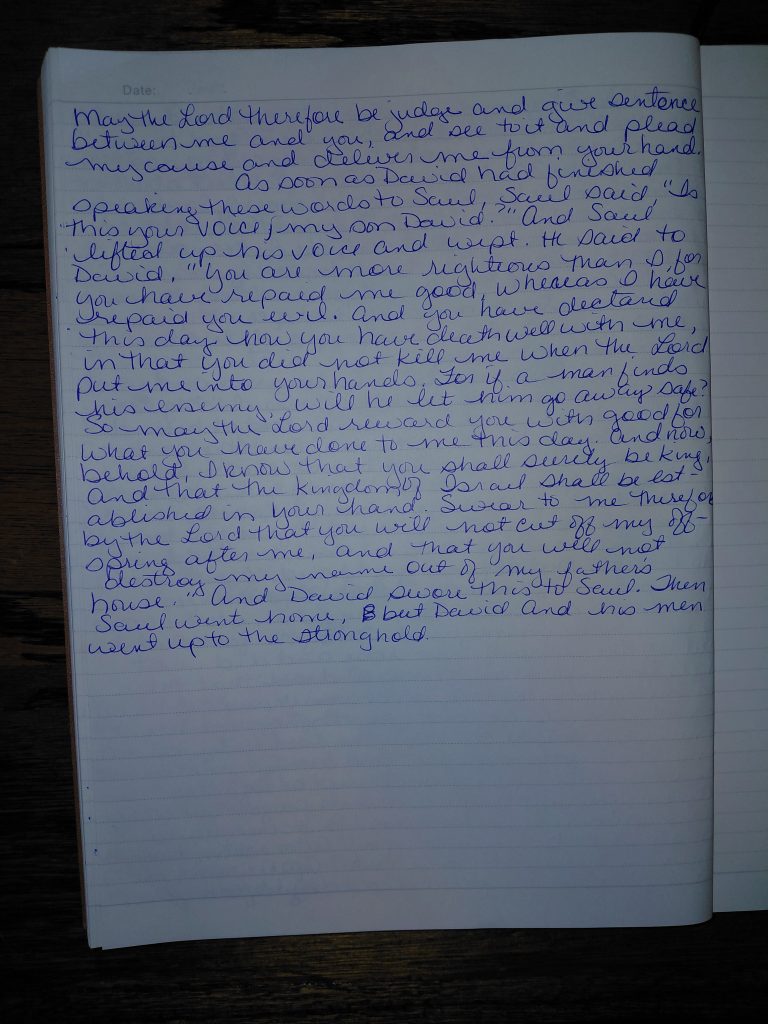 Date:
May the Lord therefore be judge and give sentence
between me and you, and see to it and plead
my cause and deliver me from your hand.
As soon as David had finished
speaking these words to Saul, Saul said, "Is
this your voice, my son David?" And Saul
lifted up his voice and wept. He said to
David, "You are more righteous than I, for
you have repaid me good, whereas I have
repaid you evil. And you have declared
this day how you have dealt well with me,
in that you did not kill me when the Lord
put me into your hands. For if a man finds
his enemy, will he let him go away safe?
So may the Lord reward you with good for
what you have done to me this day. And now,
behold, I know that you shall surely be king,
and that the kingdom of Israel shall be est-
ablished in your hand. Swear to me therefor
by the Lord that you will not cut off my off-
spring after me, and that you will not
destroy my name out of my father's
house." And David swore this to Saul. Then
Saul went home, but David and his men
went up to the stronghold.